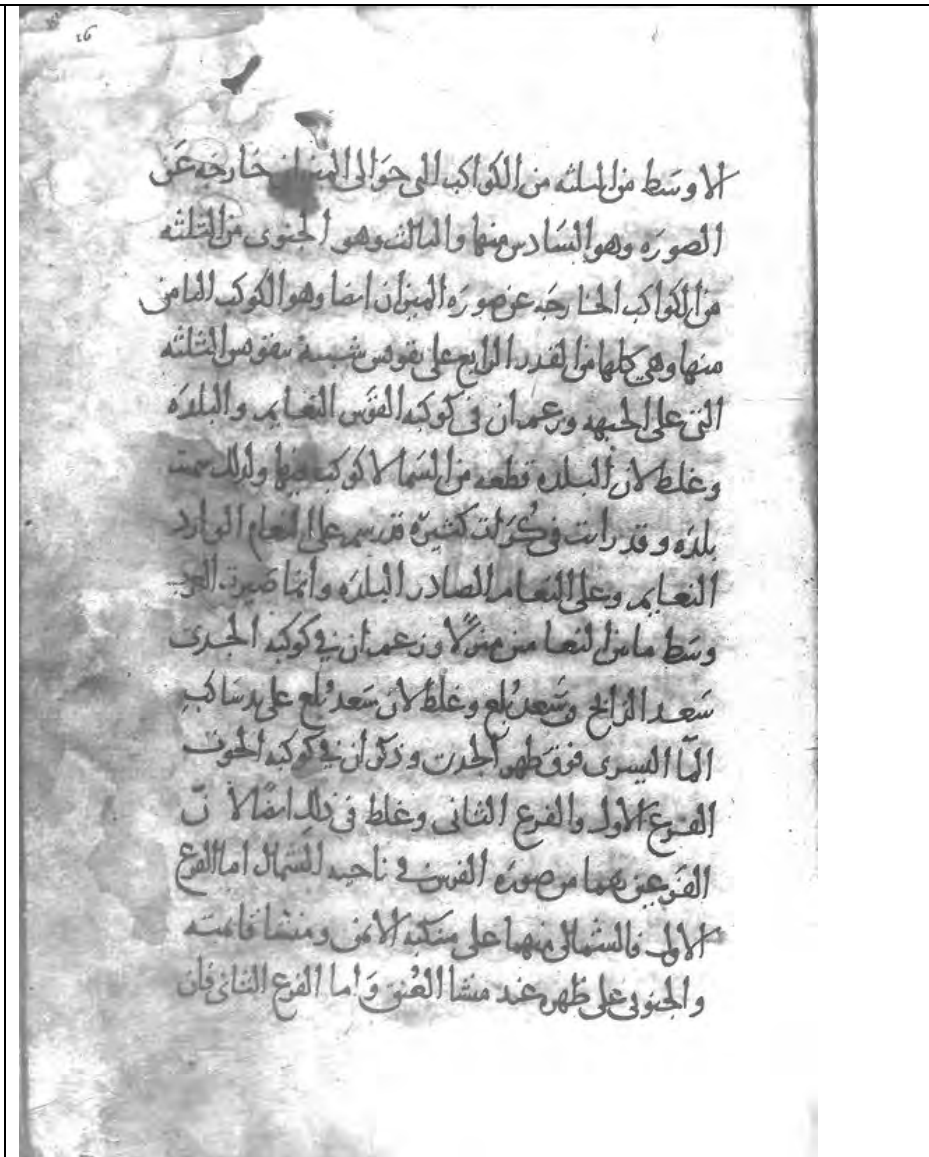 26
الاوسط من الثلثه من الكواكب التى حوالى الميزان خارجه عن
الصوره وهو السادس منها والثالث وهو الجنوبى من الثلثه
من الكواكب الخارجه عن صوره الميزان ايضا وهو الكوكب الثامن
منها وهي كلها من القدر الرابع على تقوس شبيه بتقوس الثلثه
التى على الجبهه وزعم ان فى كوكبه القوس النعايم والبلده
وغلط لان البلده قطعه من السما لا كوكب فيها ولذلك سميت
بلده وقد رايت فى كرات كثيره قد رسم على النعام الوارد
النعايم وعلى النعام الصادر البلده وانما صيرت العرب
وسط ما بين النعامين منزلا وزعم ان في كوكبه الجدى
سعد الذابح وسعد بلع وغلط لان سعد بلع على يد ساكب
الما اليسرى فوق ظهر الجدى وذكر ان في كوكبه الحوت
الفرغ الاول والفرغ الثانى وغلط فى ذلك ايضا لان
الفرغين هما من صوره الفرس في ناحيه الشمال اما الفرغ
الاول فالشمالى منهما على منكبه الايمن ومنشا قائمته
والجنوبى على ظهره عند منشا العنق واما الفرغ الثانى فان